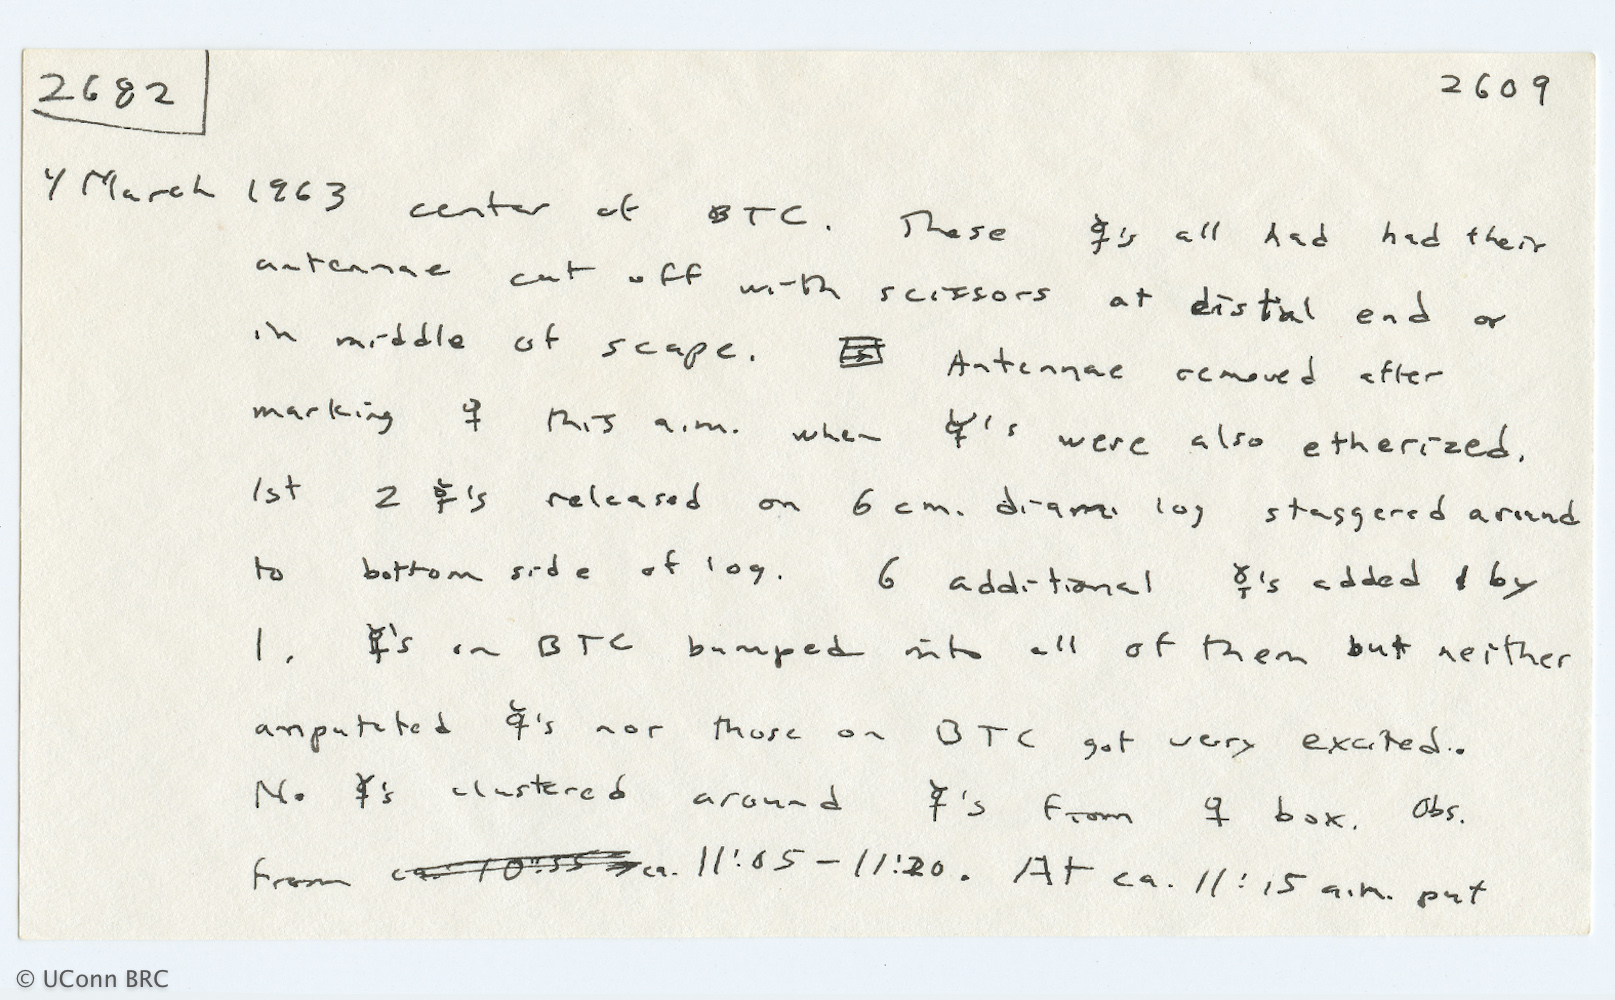 2682
2609
4 March 1963 center of BTC. These ☿'s all had had their
antennae cut off with scissors at distal end or
in middle of scape. Antennae removed after
marking ♀ this a.m. when ☿'s were also etherized.
1st 2 ☿'s released on 6 cm. diam. log staggered around
to bottom side of log. 6 additional ☿'s added 1 by
1. ☿'s on BTC bumped into all of them but neither
amputated ☿'s nor those on BTC got very excited.
No ☿'s clustered around ☿'s from ♀ box. Obs.
from ca. 10:55 ca. 11:05 - 11:20. At ca. 11:15 a.m. put
© UConn BRC